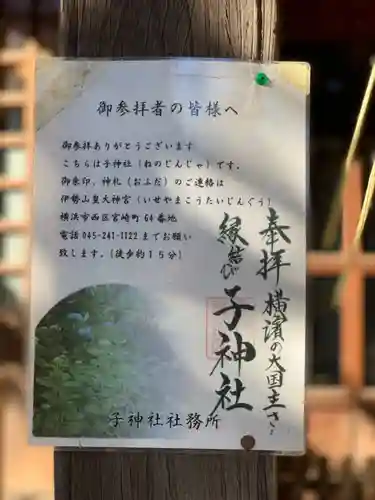 御参拝者の皆様へ
御参拝ありがとうございます
こちらは子神社（ねのじんじゃ）です。
御朱印、神札（おふだ）のご連絡は
伊勢山皇大神宮（いせやまこうたいじんぐう）
横浜市西区宮崎町64番地
電話045-241-1122までお願い
致します。（徒歩約15分）
奉拝
横濱の大国主さま
縁結び
子神社
子神社社務所